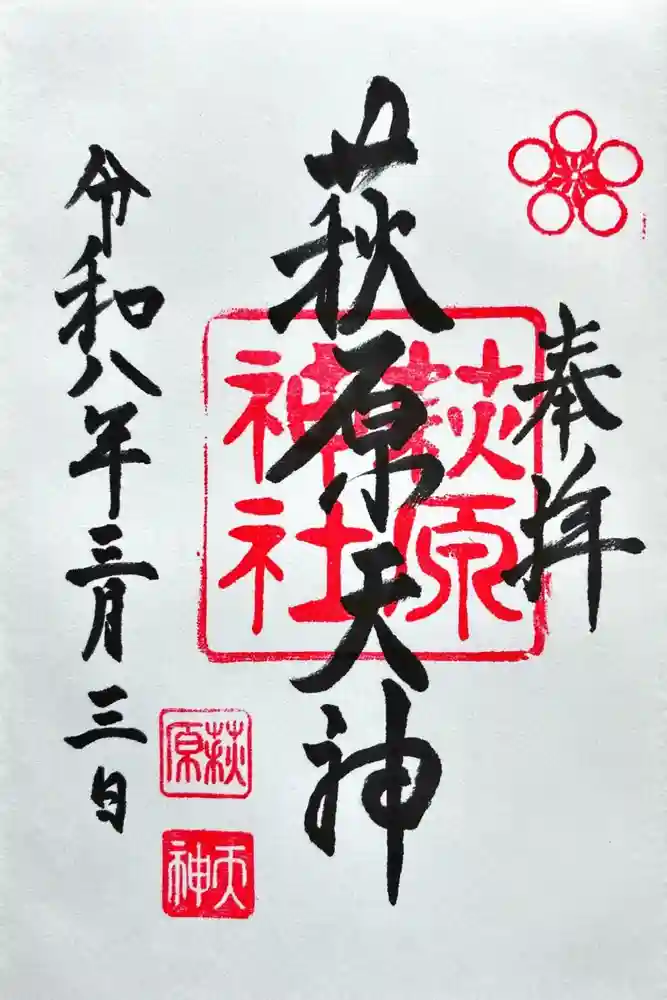 奉拝
萩原天神
萩原
神社
令和八年三月三日
萩原
天神